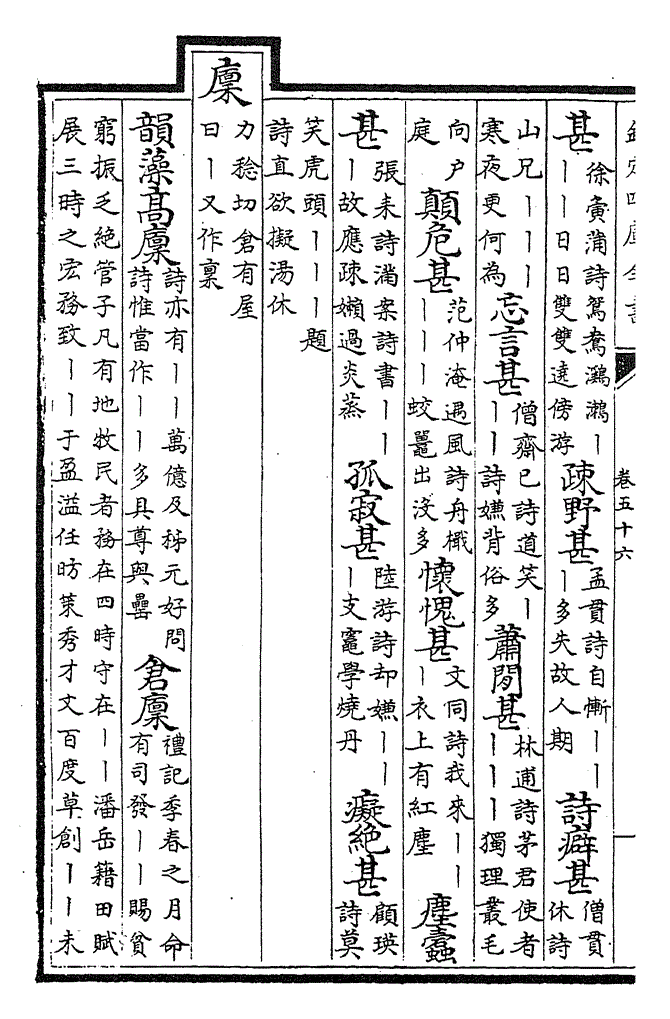 欽定四庫全書 卷五十六
甚 徐夤蒲詩鴛鴦鸂鶒丨丨丨日日雙雙遶傍游 疎野甚 孟貫詩自慚丨丨丨多失故人期 詩癖甚 僧貫休詩
山兄丨丨丨寒夜更何為 忘言甚 僧齊已詩道笑丨丨丨詩嫌背俗多 蕭閒甚 林逋詩茅君使者丨丨丨獨理叢毛
向戶庭 顛危甚 范仲淹遇風詩舟檝丨丨丨蛟鼉出沒多 懷愧甚 文同詩我來丨丨丨衣上有紅塵 塵蠹
甚 張耒詩滿案詩書丨丨丨故應疎嬾過炎蒸 孤寂甚 陸游詩却嫌丨丨丨支竈學燒丹 癡絕甚 顧瑛詩莫
笑虎頭丨丨丨題詩直欲擬湯休
廩 力稔切倉有屋曰丨又作稟
韻藻 高廩 詩亦有丨丨萬億及秭元好問詩惟當作丨丨多具尊與罍 倉廩 禮記季春之月命有司發丨丨賜貧
窮振乏絕管子凡有地牧民者務在四時守在丨丨潘岳籍田賦展三時之宏務致丨丨于盈溢任昉策秀才文百度草創丨丨未